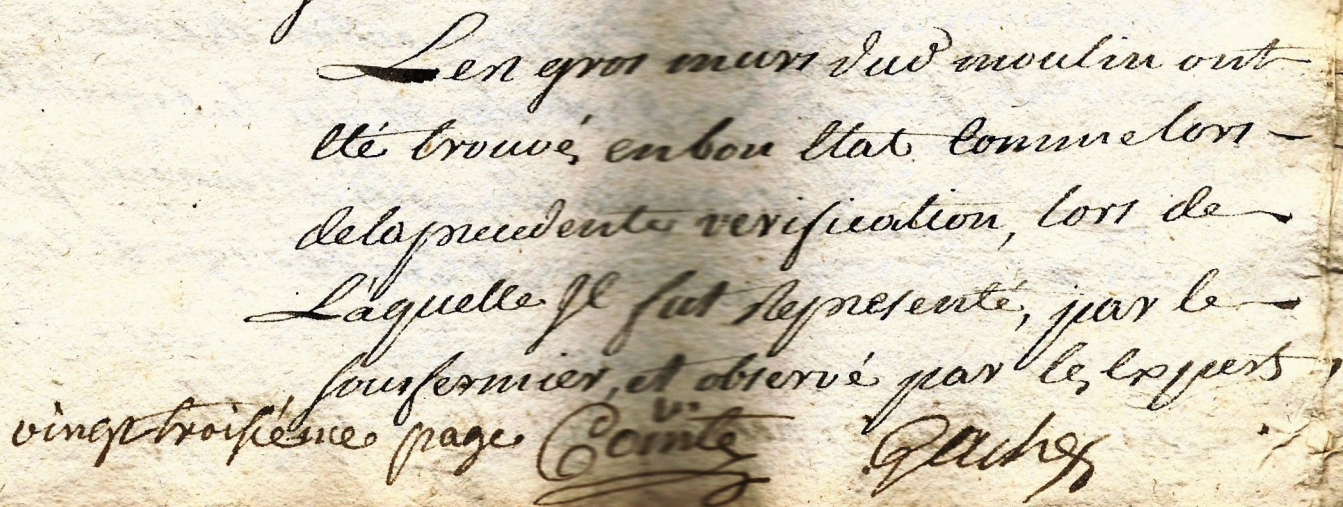 Les gros murs dud moulin ont
été trouvés en bon état comme lors
de la precedente verification, lors de
Laquelle Jl fut representé, par le
sousfermier, et observé par les experts,
vingt troisiéme page Comte Gaches